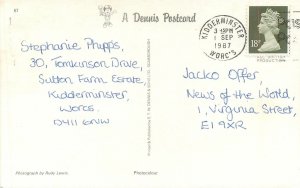 87
A Dennis Postcard
KIDDERMINSTER
3-45PM
1 SEP
1987
WORC'S
18P
Stephanie Phipps,
30, Tomkinson Drive,
Sutton Farm Estate,
Kidderminster,
Worcs.
DY11 6NW
Jacko Offer,
News of the World,
1, Virginia Street,
E1 9XR
Photograph by Rudy Lewis
Photocolour